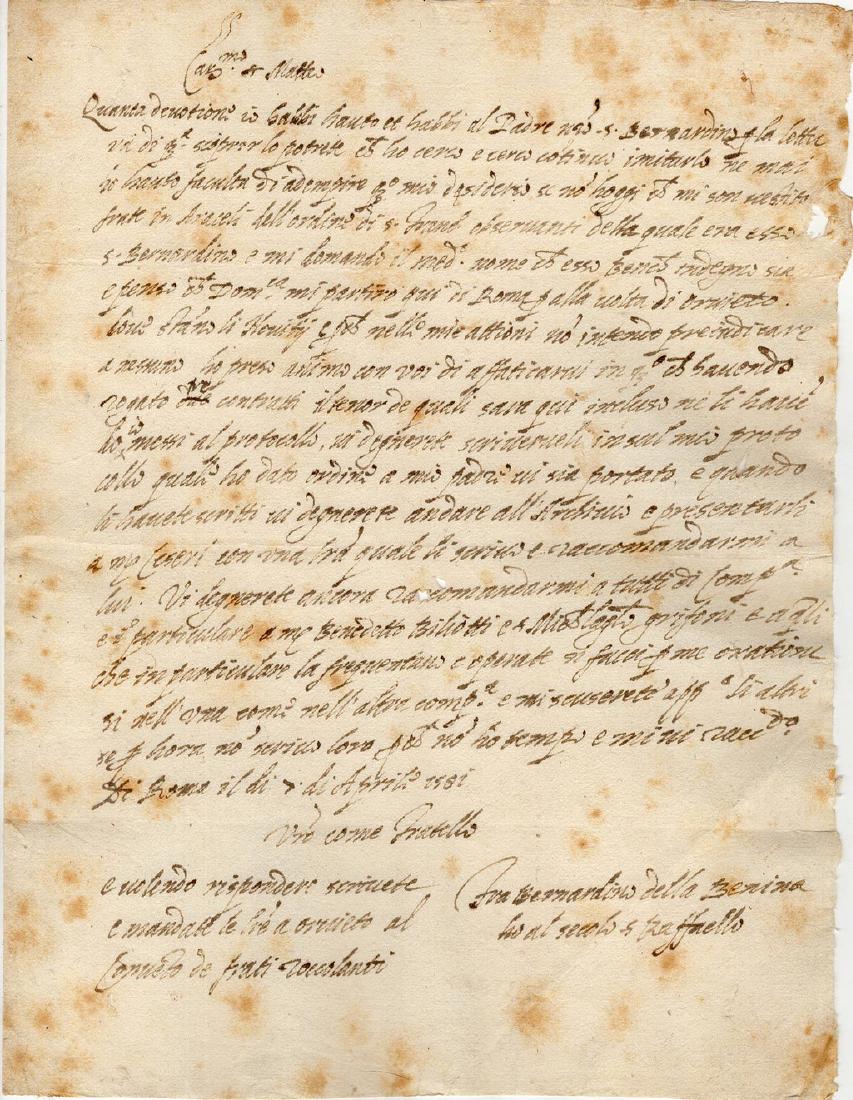 Car.mo ser Matteo
Quanta devotione io habbi hauto et habbi al Padre nro s. Bernardino p la lettu
di scoprir lo potrete ho cerco e cerco cōtinuo imitarlo ne mai
ho hauto faculta di adempire qo mio desiderio se nō hoggi mi son vestito
frate in Araceli dell'ordine di s. Franco observanti della quale era esso
s. Bernardino e mi domando il medo nome esso benche indegno sia
e penso Domca mi partiro qui di Roma p alla volta di orvieto.
dove stāno li Novitij e nelle mie attioni nō intendo preiudicare
a nessuno ho preso animo con voi di affaticarvi in qo havendo
rogato contratti il tenor de quali sara qui incluso ne li havē
do io messi al protocollo, vi degnerete scrivermeli in sul mio proto
collo quale ho dato ordine a mio padre vi sia portato, e quando
li havete scritti vi degnerete andare all'Archivio e presentarli
a mr con una lrā quale li scrivo e raccomandarmi a
lui. Vi degnerete ancora raccomandarmi a tutti di Compa
e particulare a mr Benedetto Biliotti e grifoni e a gli
che in particulare la frequentano e operate si facci p me oratione
si nell'una come nell'altra compa e mi scuserete li altri
se p hora nō scrivo loro nō ho tempo e mi vi raccdo
Di Roma il di 7 di Aprile 1581
Vro come Fratello
e volendo rispondere scrivete
e mandate le lrē a orvieto al
Convēto de frati zoccolanti
Fra Bernardino della Benina
ho al secolo s Raffaello